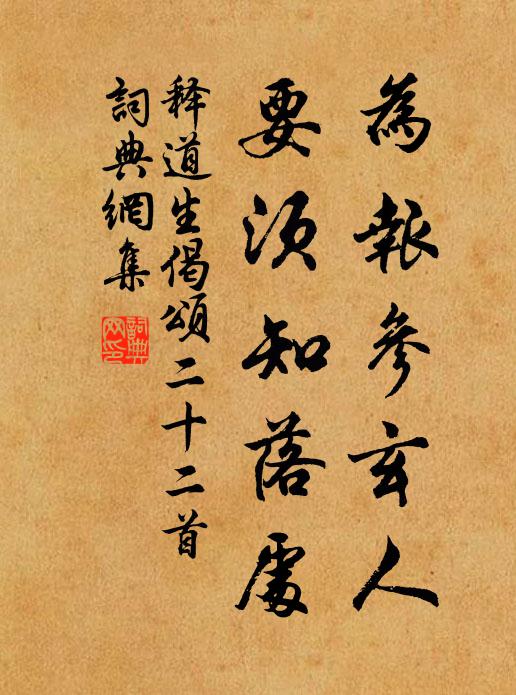 為報參玄人
要須知落處
释道生偈頌二十二首
詞典網集
詞典網印